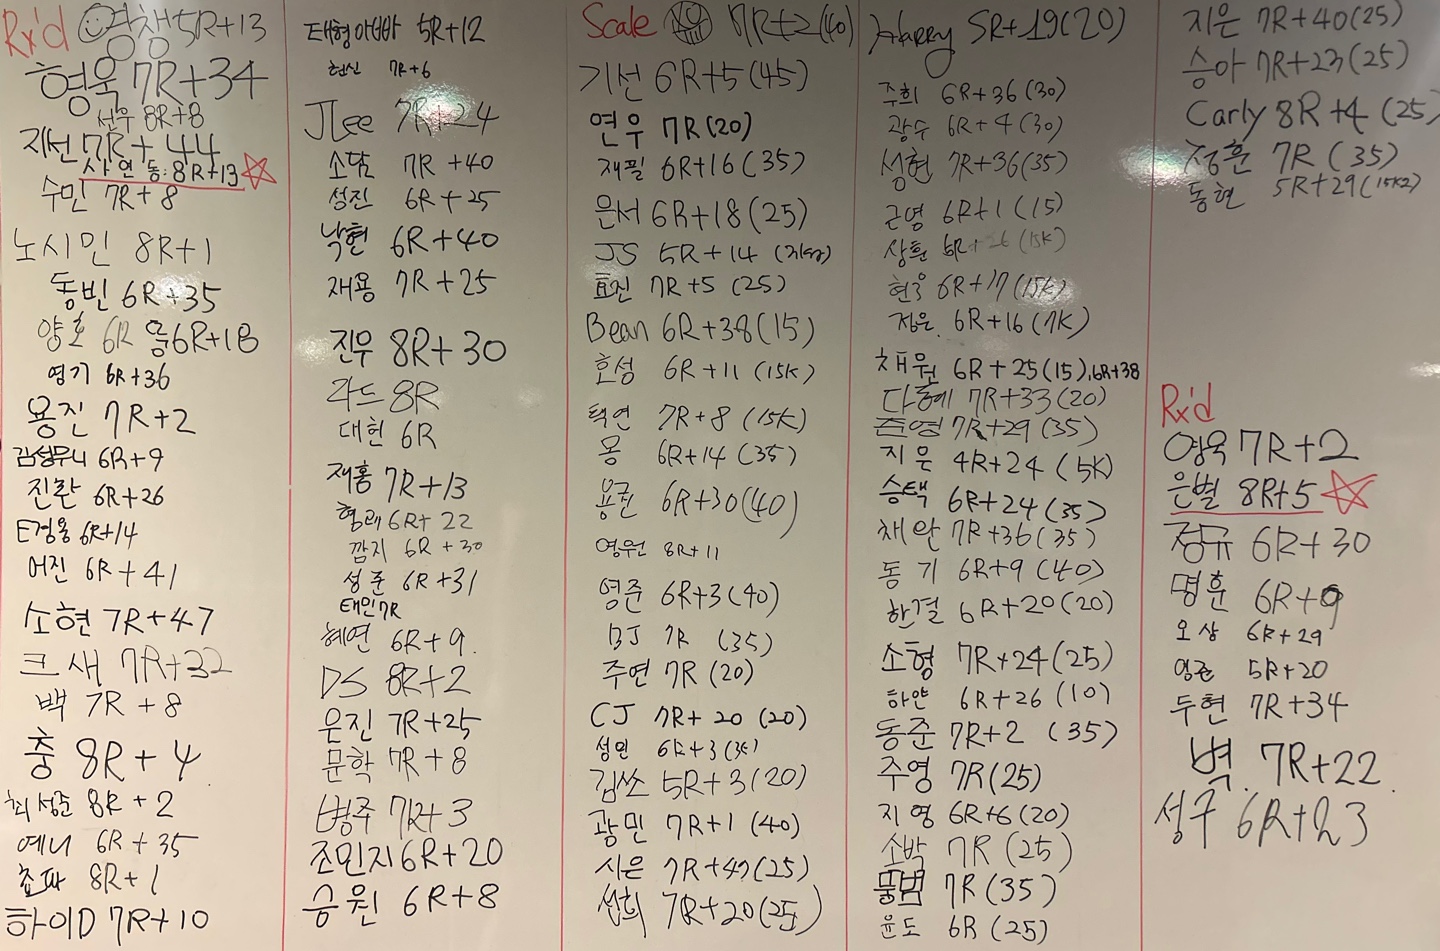 Rx'd 영창 5R+13
형욱 7R+34
선우 8R+8
재선 7R+44
상연동: 8R+13
수민 7R+8
노시민 8R+1
동빈 6R+35
양호 6R 뚱6R+18
영기 6R+36
용진 7R+2
김성우니 6R+9
진환 6R+26
E경용 6R+14
어진 6R+41
소현 7R+47
크새 7R+32
백 7R+8
충 8R+4
최성준 8R+2
예니 6R+35
쵸파 8R+1
하이D 7R+10
태형아빠 5R+12
현신 7R+6
JLee 7R+24
소담 7R+40
성진 6R+25
낙현 6R+40
재용 7R+25
진우 8R+30
라드 8R
대헌 6R
재홍 7R+13
형래 6R+22
깜지 6R+30
성준 6R+31
태민 7R
혜연 6R+9
DS 8R+2
은진 7R+25
문학 7R+8
병주 7R+3
조민지 6R+20
승원 6R+8
Scale 7R+2(40)
기선 6R+5(45)
연우 7R(20)
재필 6R+16(35)
은서 6R+18(25)
JS 5R+14
효진 7R+5 (25)
Bean 6R+38(15)
호성 6R+11 (15K)
탁연 7R+8 (15K)
몽 6R+14 (35)
용권 6R+30(40)
영원 8R+11
영준 6R+3(40)
BJ 7R (35)
주연 7R (20)
CJ 7R+20 (20)
성민 6R+3(35)
김쏘 5R+3(20)
광민 7R+1 (40)
시은 7R+47(25)
섭희 7R+20(25)
Harry 5R+19(20)
주희 6R+36(30)
광수 6R+4(30)
성현 7R+36(35)
근영 6R+1(15)
상훈 6R+26(15K)
현웅 6R+17(15K)
정은 6R+16(7K)
채원 6R+25(15), 6R+38
다혜 7R+33(20)
준영 7R+29(35)
지은 4R+24(5K)
승택 6R+24(35)
채완 7R+36(35)
동기 6R+9(40)
한결 6R+20(20)
소형 7R+24(25)
하얀 6R+26(10)
동준 7R+2 (35)
주영 7R(25)
지영 6R+6(20)
소박 7R (25)
7R(35)
윤도 6R (25)
지은 7R+40(25)
승아 7R+23(25)
Carly 8R+4 (25)
정훈 7R (35)
동현 5R+29
Rx'd
영욱 7R+2
은별 8R+5
정규 6R+30
명훈 6R+9
오상 6R+29
영권 5R+20
두현 7R+34
벽 7R+22
성구 6R+23